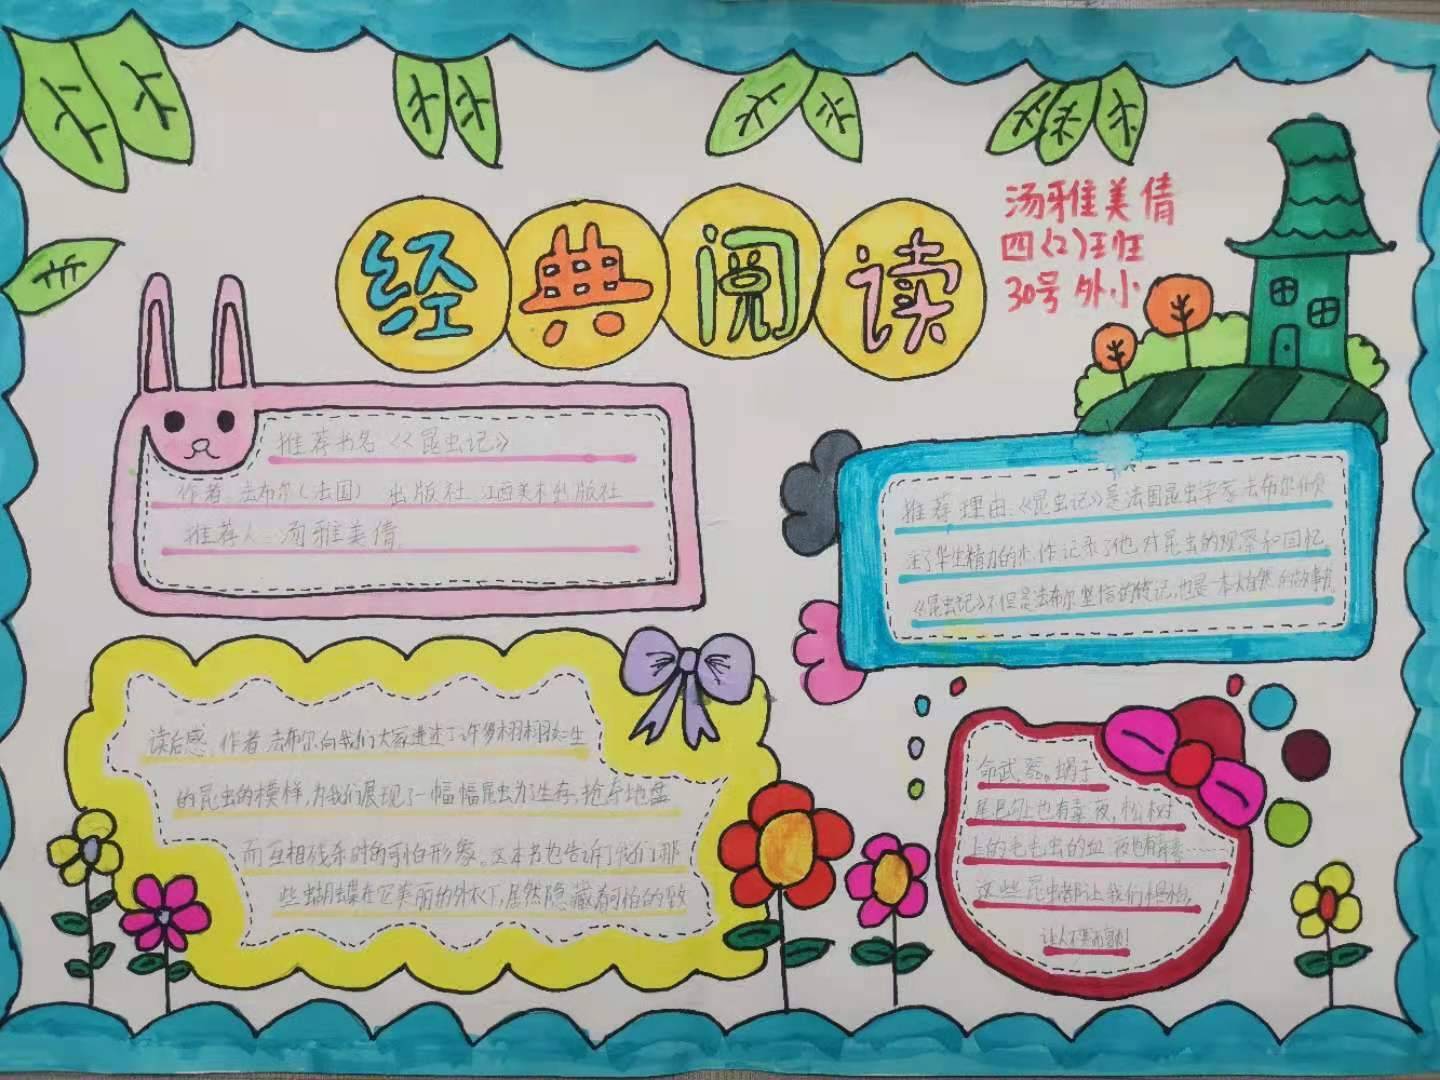 经典阅读
汤雅美倩
四(2)班
30号 外小
推荐书名《昆虫记》
作者 法布尔(法国) 出版社 江西美术出版社
推荐人:汤雅美倩
推荐理由:《昆虫记》是法国昆虫学家法布尔倾
注了毕生精力的 作 记录了他对昆虫的观察和回忆
《昆虫记》不但是法布尔 的 记,也是一本大自然的故事
读后感 作者法布尔向我们大家讲述了许多栩栩如生
的昆虫的模样,为我们展现了一幅幅昆虫为了生存、抢夺地盘
而互相残杀时的可怕形象。这本书也告诉了我们那
些蝴蝶在它美丽的外衣下,居然隐藏着可怕的致
命武器。蝎子
尾巴上也有毒液,松树
上的毛毛虫的血液也有毒
这些昆虫都让我们